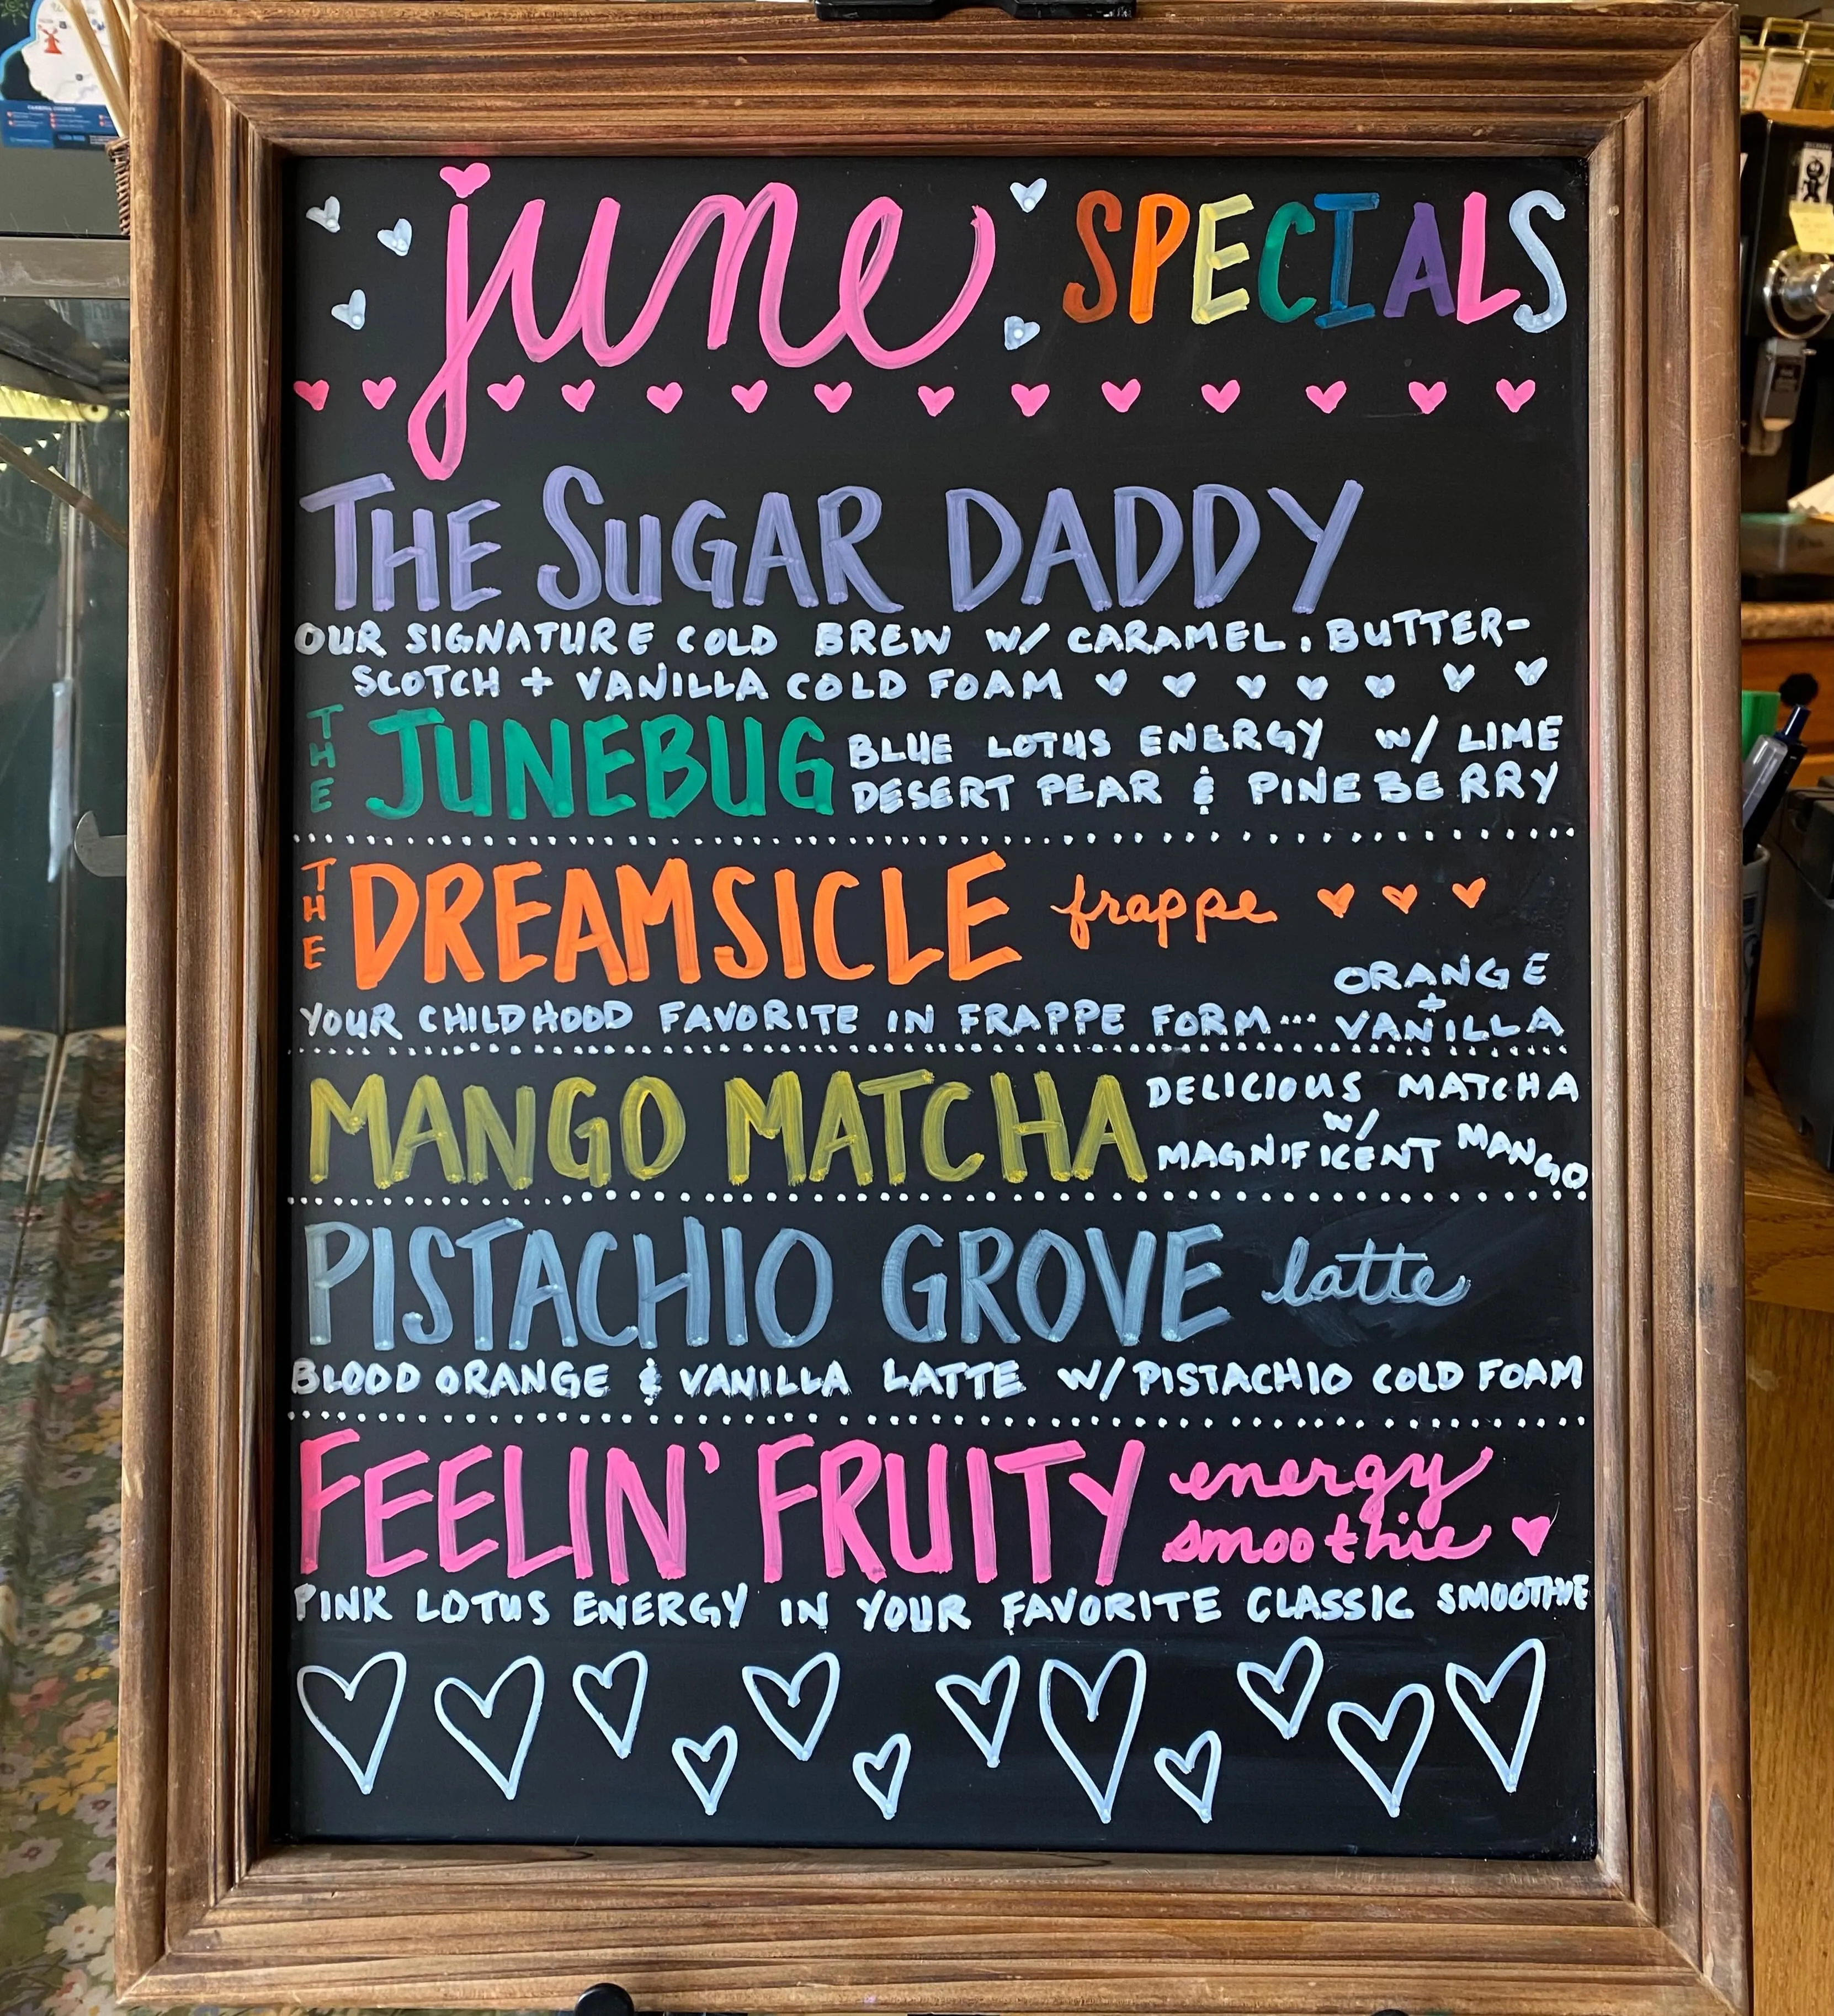 june SPECIALS
THE SUGAR DADDY
OUR SIGNATURE COLD BREW W/ CARAMEL, BUTTER-
SCOTCH + VANILLA COLD FOAM
THE JUNEBUG
BLUE LOTUS ENERGY W/ LIME
DESERT PEAR & PINEBERRY
THE DREAMSICLE frappe
YOUR CHILDHOOD FAVORITE IN FRAPPE FORM...
ORANGE
+
VANILLA
MANGO MATCHA
DELICIOUS MATCHA
W/
MAGNIFICENT MANGO
PISTACHIO GROVE latte
BLOOD ORANGE & VANILLA LATTE W/ PISTACHIO COLD FOAM
FEELIN' FRUITY energy
smoothie
PINK LOTUS ENERGY IN YOUR FAVORITE CLASSIC SMOOTHIE